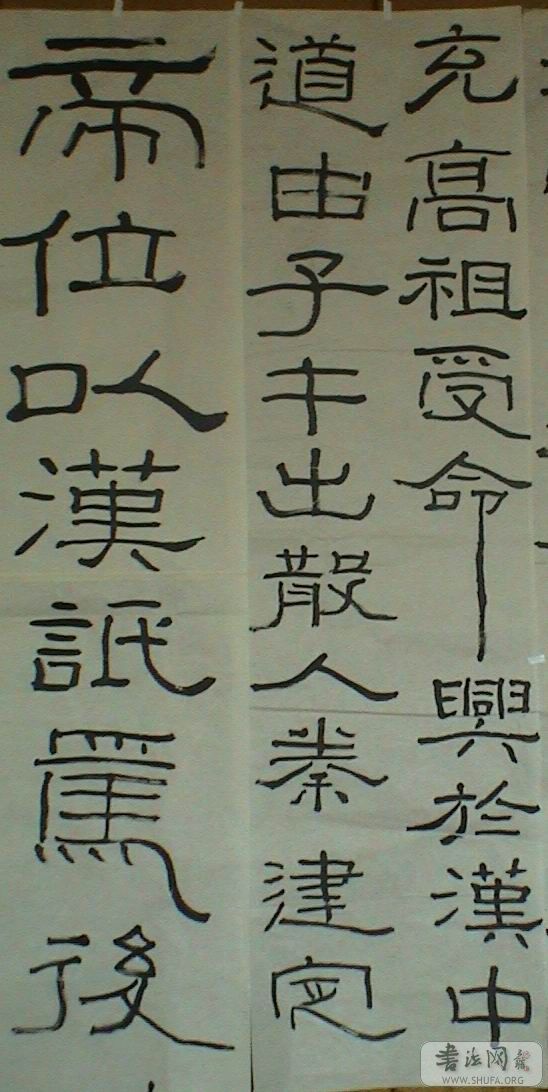 充高祖受命興於漢中
道由子午出散入秦建定
帝位以漢詆焉後
書法网
WWW.SHUFA.ORG